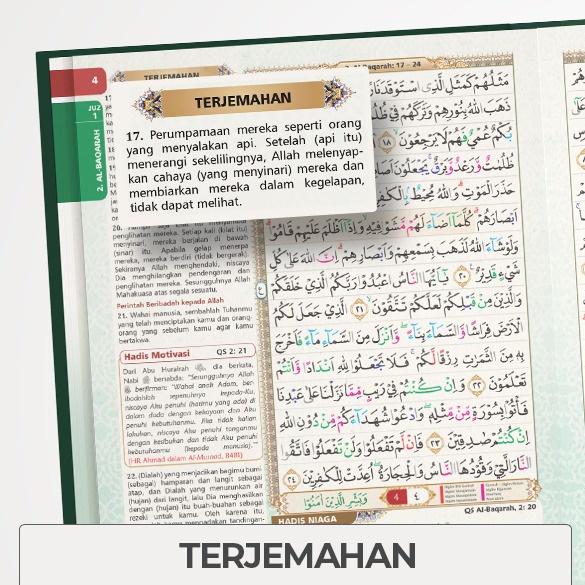 4
JUZ
1
2. AL-BAQARAH
TERJEMAHAN
2. Al-Baqarah: 17 – 24
TERJEMAHAN
17. Perumpamaan mereka seperti orang
yang menyalakan api. Setelah (api itu)
menerangi sekelilingnya, Allah melenyap-
kan cahaya (yang menyinari) mereka dan
membiarkan mereka dalam kegelapan,
tidak dapat melihat.
penglihatan mereka. Setiap kali (kilat itu)
menyinari, mereka berjalan di bawah
(sinar) itu. Apabila gelap menerpa
mereka, mereka berdiri (tidak bergerak).
Sekiranya Allah menghendaki, niscaya
Dia menghilangkan pendengaran dan
penglihatan mereka. Sesungguhnya Allah
Mahakuasa atas segala sesuatu.
Perintah Beribadah kepada Allah
21. Wahai manusia, sembahlah Tuhanmu
yang telah menciptakan kamu dan orang-
orang yang sebelum kamu agar kamu
bertakwa.
Hadis Motivasi QS 2: 21
Dari Abu Hurairah, dia berkata,
Nabi bersabda: "Sesungguhnya Allah
berfirman: "Wahai anak Adam, ber-
ibadahlah sepenuhnya kepada-Ku,
niscaya Aku penuhi (hatimu yang ada) di
dalam dada dengan kekayaan dan Aku
penuhi kebutuhanmu. Jika tidak kalian
lakukan, niscaya Aku penuhi tanganmu
dengan kesibukan dan tidak Aku penuhi
kebutuhanmu (kepada manusia).
(HR Ahmad dalam Al-Musnad, 8481)
22. (Dialah) yang menjadikan bagimu bumi
(sebagai) hamparan dan langit sebagai
atap, dan Dialah yang menurunkan air
(hujan) dari langit, lalu Dia menghasilkan
dengan (hujan) itu buah-buahan sebagai
rezeki untuk kamu. Oleh karena itu,
مَثَلُهُمْ كَمَثَلِ الَّذِى اسْتَوْقَدَ نَارًا
ذَهَبَ اللّٰهُ بِنُوْرِهِمْ وَتَرَكَهُمْ فِيْ
بُكْمٌ عُمْيٌ فَهُمْ لَا يَرْجِعُوْنَ ١٨
ظُلُمٰتٌ وَّرَعْدٌ وَّبَرْقٌ يَجْعَلُوْنَ
حَذَرَ الْمَوْتِ وَاللّٰهُ مُحِيْطٌ
اَبْصَارَهُمْ كُلَّمَآ اَضَاۤءَ لَهُمْ مَّشَوْا فِيْهِ وَاِذَآ اَظْلَمَ عَلَيْهِمْ قَامُوْا
وَلَوْ شَاۤءَ اللّٰهُ لَذَهَبَ بِسَمْعِهِمْ وَاَبْصَارِهِمْ اِنَّ اللّٰهَ عَلٰى كُلِّ
شَيْءٍ قَدِيْرٌ ٢٠ يٰٓاَيُّهَا النَّاسُ اعْبُدُوْا رَبَّكُمُ الَّذِيْ خَلَقَكُمْ
وَالَّذِيْنَ مِنْ قَبْلِكُمْ لَعَلَّكُمْ تَتَّقُوْنَ ٢١ الَّذِيْ جَعَلَ لَكُمُ
الْاَرْضَ فِرَاشًا وَّالسَّمَاۤءَ بِنَاۤءً وَّاَنْزَلَ مِنَ السَّمَاۤءِ مَاۤءً فَاَخْرَجَ
بِهٖ مِنَ الثَّمَرٰتِ رِزْقًا لَّكُمْ فَلَا تَجْعَلُوْا لِلّٰهِ اَنْدَادًا وَّاَنْتُمْ
تَعْلَمُوْنَ ٢٢ وَاِنْ كُنْتُمْ فِيْ رَيْبٍ مِّمَّا نَزَّلْنَا عَلٰى عَبْدِنَا
فَأْتُوْا بِسُوْرَةٍ مِّنْ مِّثْلِهٖ وَادْعُوْا شُهَدَاۤءَكُمْ مِّنْ دُوْنِ اللّٰهِ
اِنْ كُنْتُمْ صٰدِقِيْنَ ٢٣ فَاِنْ لَّمْ تَفْعَلُوْا وَلَنْ تَفْعَلُوْا فَاتَّقُوا
النَّارَ الَّتِيْ وَقُوْدُهَا النَّاسُ وَالْحِجَارَةُ اُعِدَّتْ لِلْكٰفِرِيْنَ ٢٤
وَبَشِّرِ الَّذِيْنَ اٰمَنُوْا
4 ٤
HADIS NIAGA
QS Al-Baqarah, 2: 20
TERJEMAHAN